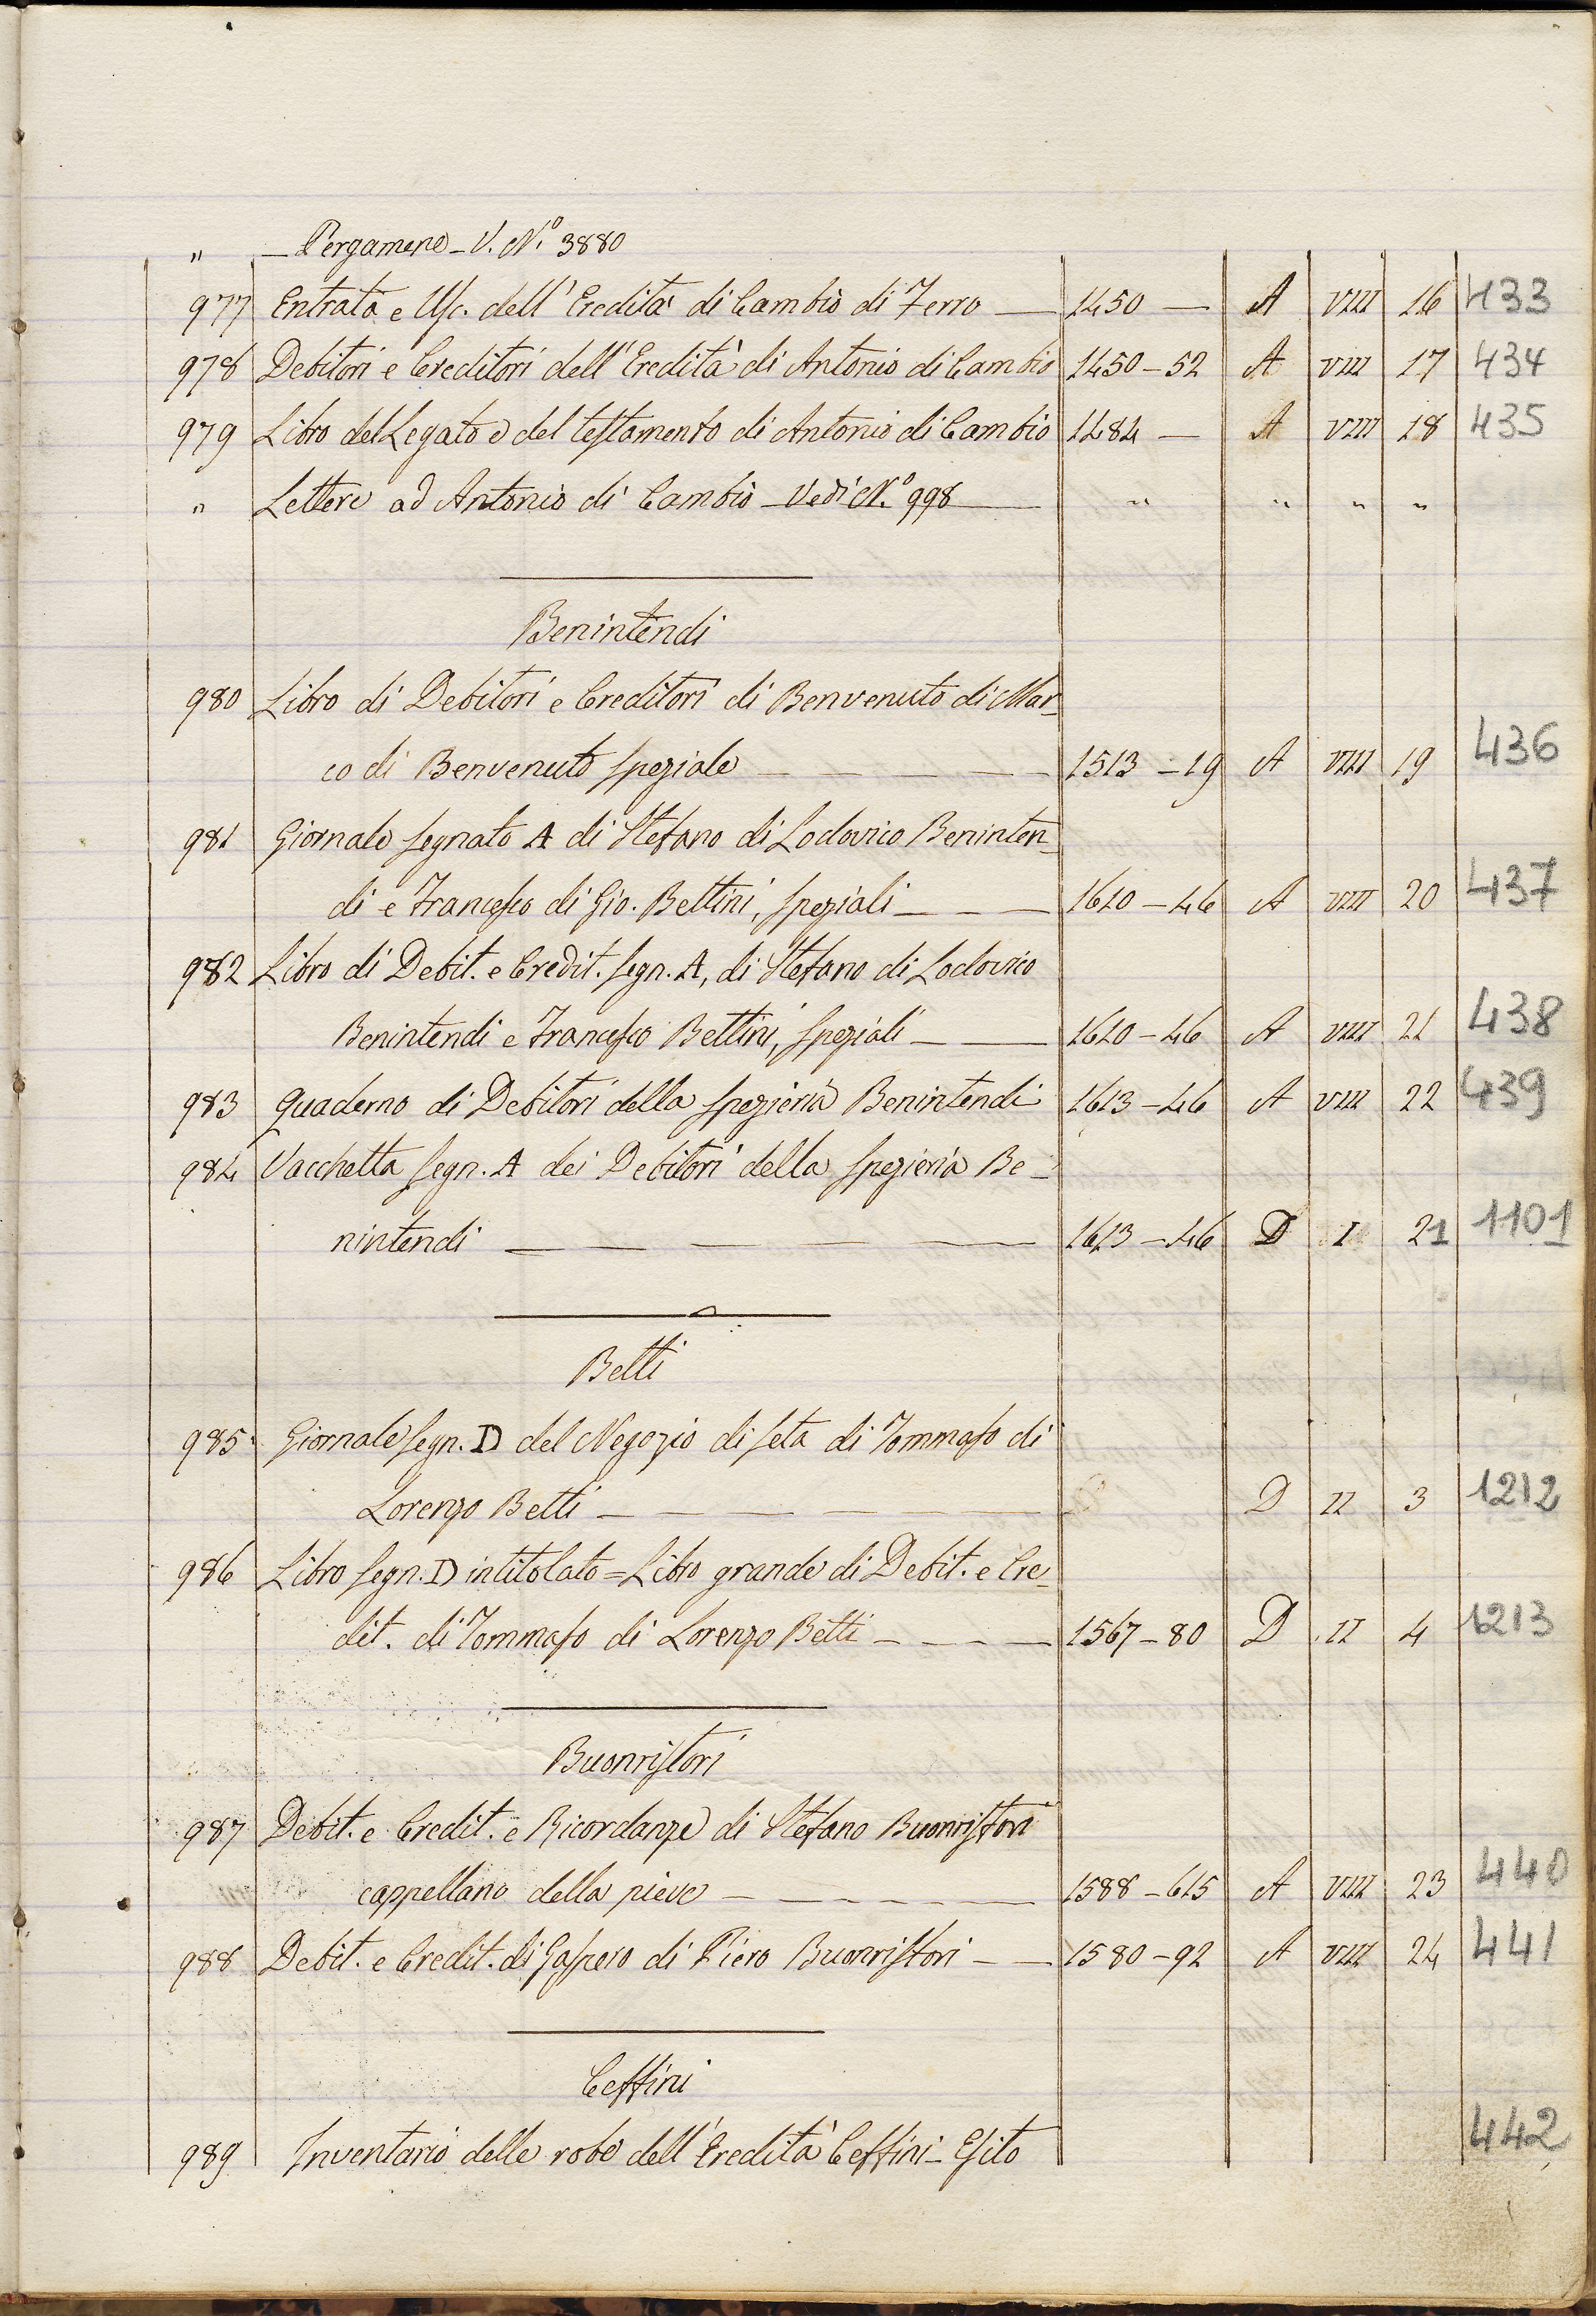 " — Pergamene - V. N.º 3880
977 Entrata e Usc. dell'Eredità di Cambio di Ferro — 1450 — A VIII 16 433
978 Debitori e Creditori dell'Eredità di Antonio di Cambio 1450-52 A VIII 17 434
979 Libro del Legato e del testamento di Antonio di Cambio 1484 — A VIII 18 435
" Lettere ad Antonio di Cambio - Vedi N.º 998 — " " " "
Benintendi
980 Libro di Debitori e Creditori di Benvenuto di Mar-
co di Benvenuto speziale — 1513-19 A VIII 19 436
981 Giornale segnato A di Stefano di Lodovico Beninten-
di e Francesco di Gio. Bettini, speziali — 1610-46 A VIII 20 437
982 Libro di Debit. e Credit. segn. A, di Stefano di Lodovico
Benintendi e Francesco Bettini, speziali — 1610-46 A VIII 21 438
983 Quaderno di Debitori della spezieria Benintendi 1613-46 A VIII 22 439
984 Vacchetta segn. A dei Debitori della spezieria Be-
nintendi — 1613-46 D I 21 1101
Betti
985 Giornale segn. D del Negozio di seta di Tommaso di
Lorenzo Betti — D II 3 1212
986 Libro segn. D intitolato = Libro grande di Debit. e Cre-
dit. di Tommaso di Lorenzo Betti — 1567-80 D II 4 1213
Buonristori
987 Debit. e Credit. e Ricordanze di Stefano Buonristori
cappellano della pieve — 1588-615 A VIII 23 440
988 Debit. e Credit. di Gaspero di Piero Buonristori — 1580-92 A VIII 24 441
Ceffini
989 Inventario delle robe dell'Eredità Ceffini - Esito 442